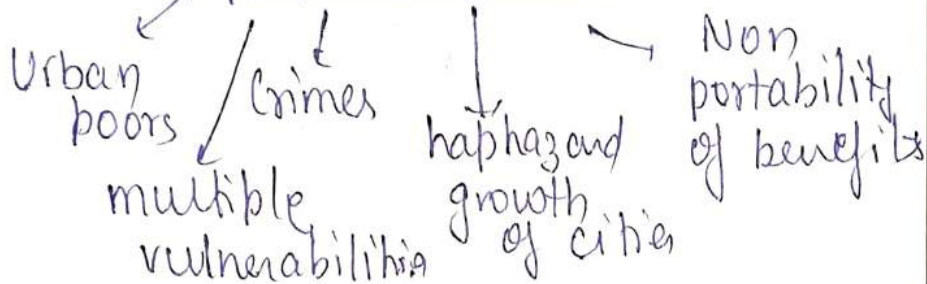 Urban
poors
multiple
vulnerabilities
Crimes
haphazard
growth
of cities
Non
portability
of benefits